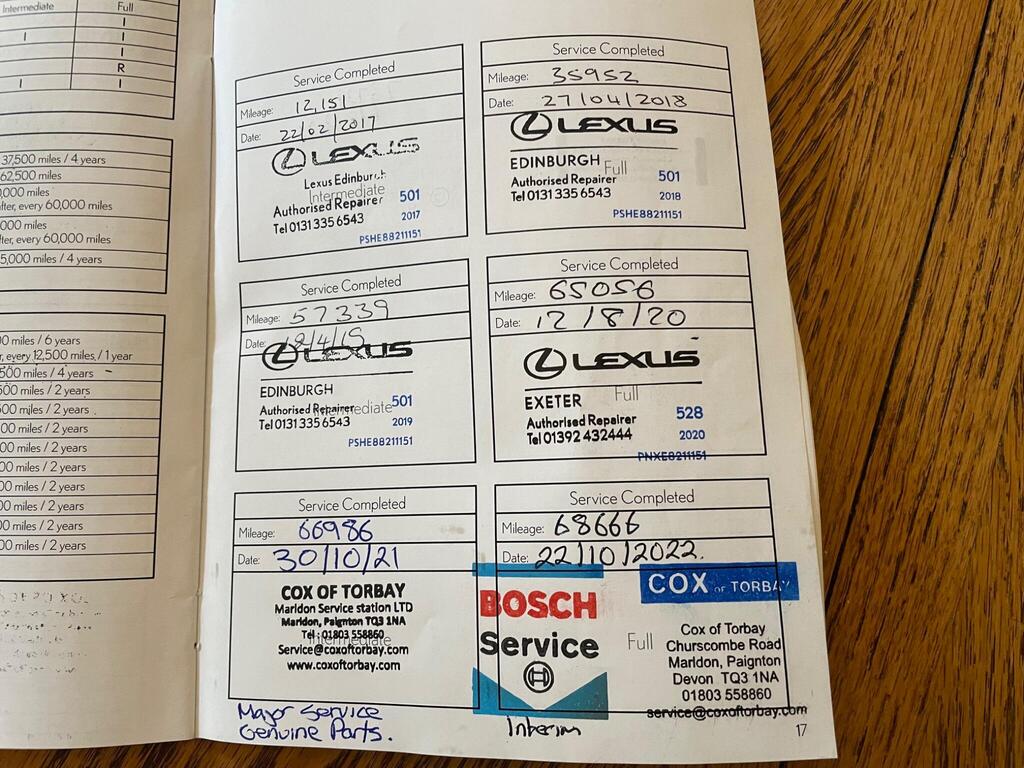 Intermediate Full
I I
I
R
I I
37,500 miles / 4 years
62,500 miles
000 miles
after, every 60,000 miles
000 miles
after, every 60,000 miles
5,000 miles / 4 years
00 miles / 6 years
r, every 12,500 miles / 1 year
500 miles / 4 years
500 miles / 2 years
500 miles / 2 years
00 miles / 2 years
00 miles / 2 years
00 miles / 2 years
00 miles / 2 years
00 miles / 2 years
00 miles / 2 years
00 miles / 2 years
Service Completed
Mileage: 12,151
Date: 22/02/2017
LEXUS
Lexus Edinburgh
Intermediate
Authorised Repairer 501
Tel 0131 335 6543 2017
PSHE88211151
Service Completed
Mileage: 35952
Date: 27/04/2018
LEXUS
EDINBURGH Full
Authorised Repairer 501
Tel 0131 335 6543 2018
PSHE88211151
Service Completed
Mileage: 57339
Date: /4/19
LEXUS
EDINBURGH
Authorised Repairer Intermediate 501
Tel 0131 335 6543 2019
PSHE88211151
Service Completed
Mileage: 65056
Date: 12/8/20
LEXUS
Full
EXETER
Authorised Repairer 528
Tel 01392 432444 2020
PNXE8211151
Service Completed
Mileage: 66986
Date: 30/10/21
COX OF TORBAY
Marldon Service station LTD
Marldon, Paignton TQ3 1NA
Tel: 01803 558860
Intermediate
Service@coxoftorbay.com
www.coxoftorbay.com
Major Service
Genuine Parts.
Service Completed
Mileage: 68666
Date: 22/10/2022.
BOSCH
Service
Full
COX OF TORBAY
Cox of Torbay
Churscombe Road
Marldon, Paignton
Devon TQ3 1NA
01803 558860
service@coxoftorbay.com
Interim
17